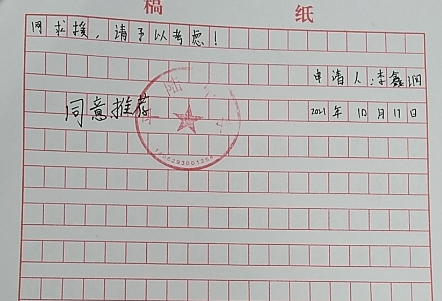 稿纸
网求援，请予以考虑！
申请人：李鑫润
同意推荐
2021年10月17日